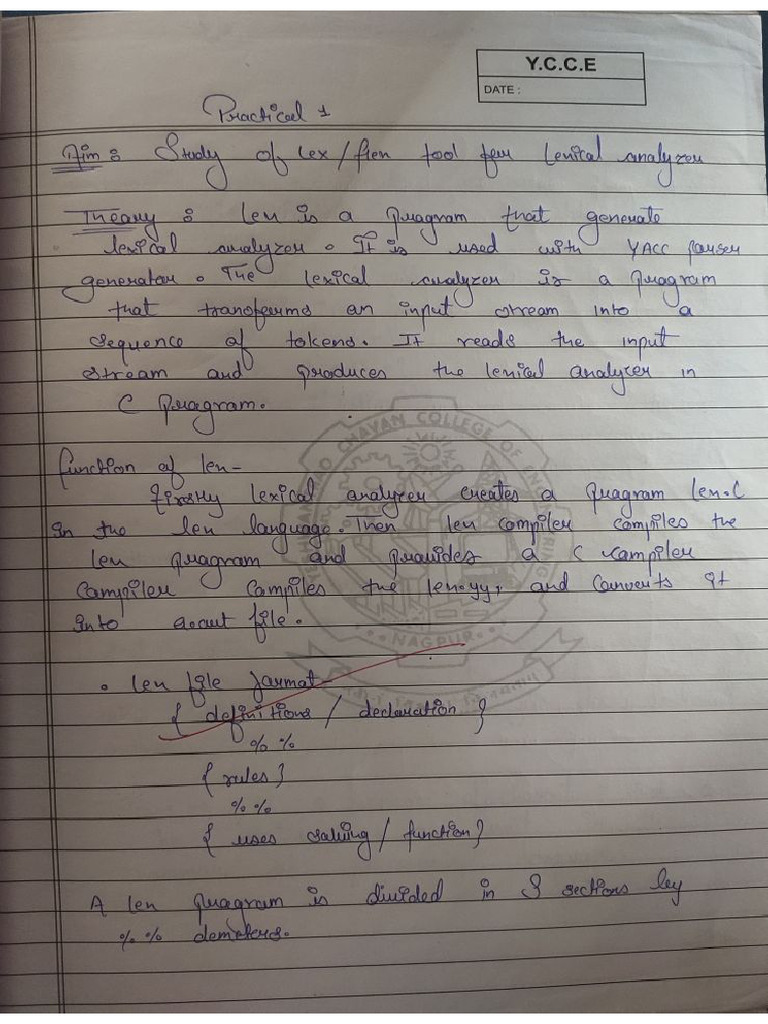 Y.C.C.E
DATE :
Practical 1
Aim : Study of Lex / flex tool for lexical analyzer
Theory : Lex is a program that generate
lexical analyzer. It is used with YACC parser
generator. The lexical analyzer is a program
that transforms an input stream into a
sequence of tokens. It reads the input
stream and produces the lexical analyzer in
C program.
function of lex-
firstly lexical analyzer creates a program lex.l
in the lex language. Then lex compiler compiles the
lex program and provides a C compiler
compiler compiles the lex.yy, and converts it
into a.out file.
• lex file format-
{ definitions / declaration }
% %
{ rules }
% %
{ uses / function }
A lex program is divided in 3 sections by
% %
YESHWANTRAO CHAVAN COLLEGE OF ENGINEERING
NAGPUR